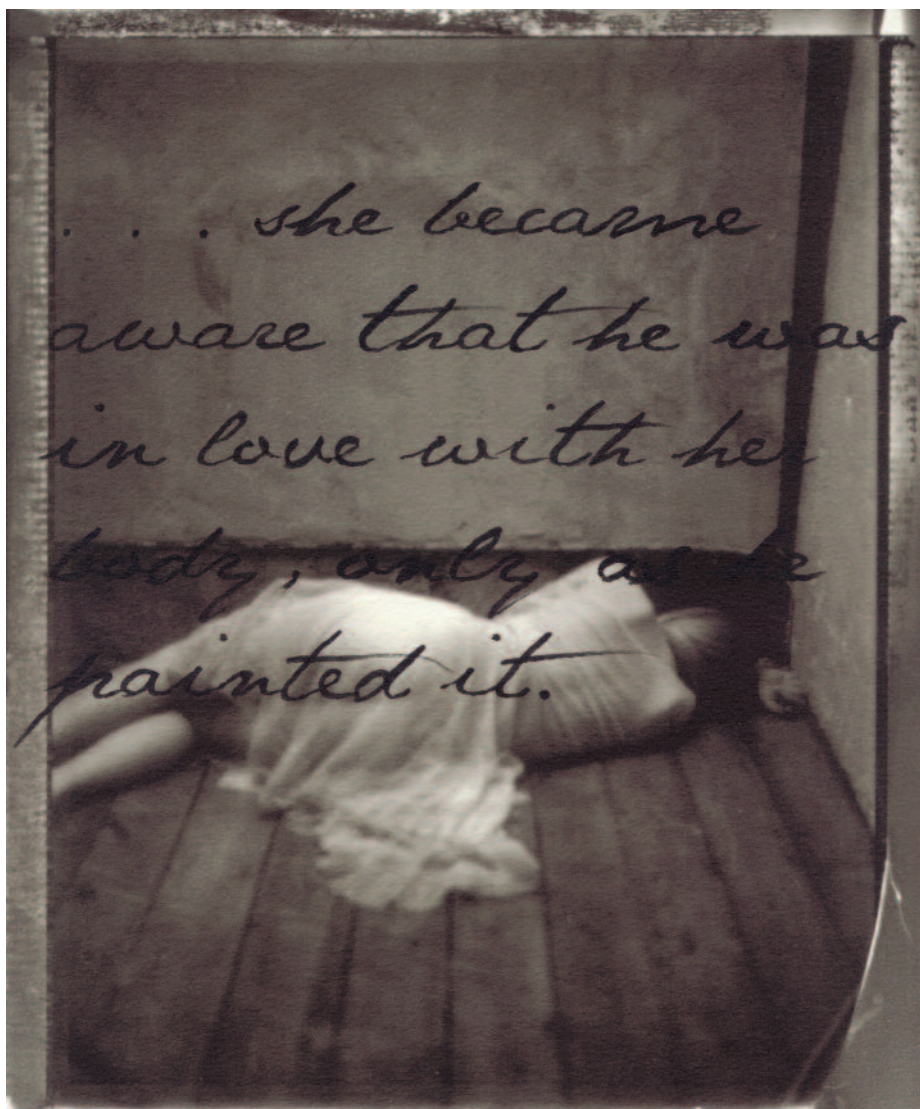 . . . she became
aware that he was
in love with her
body, only as he
painted it.